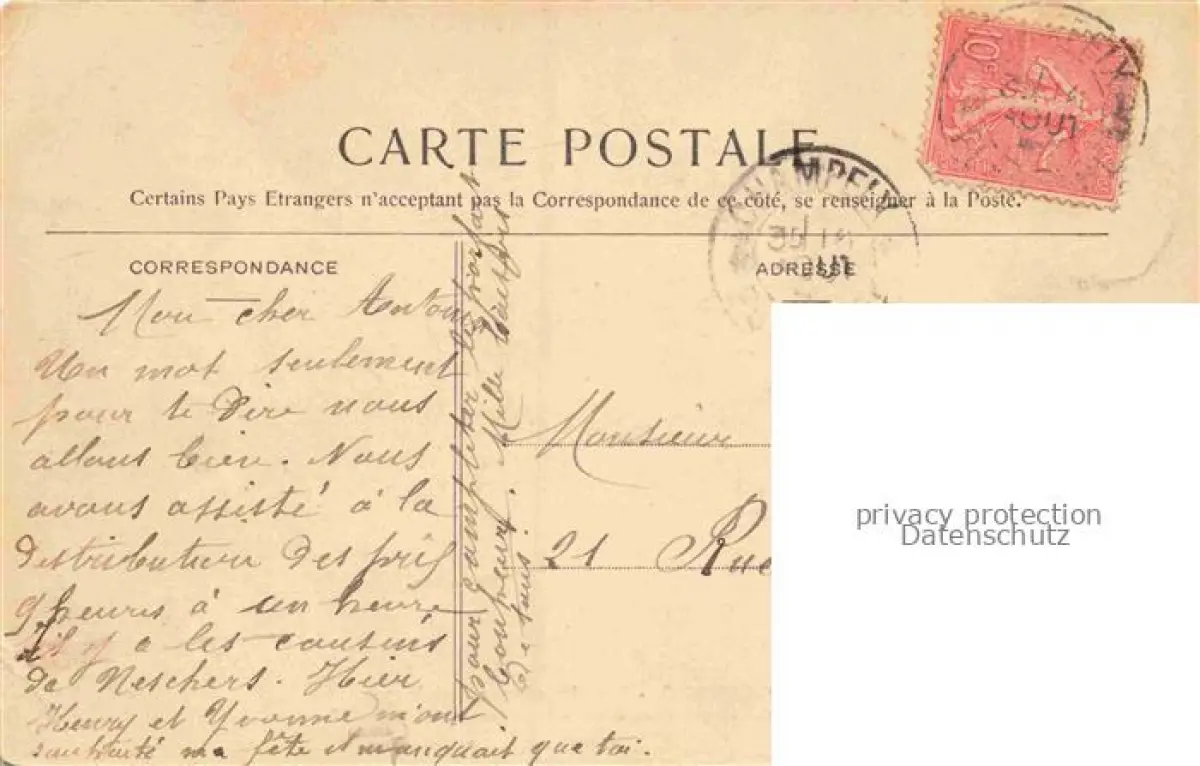 CARTE POSTALE
Certains Pays Etrangers n'acceptant pas la Correspondance de ce côté, se renseigner à la Poste.
CORRESPONDANCE
ADRESSE
10c
CHAMPEIX
AOUT
Mon cher Antoine
Un mot seulement
pour te dire nous
allons bien. Nous
avons assisté à la
distribution des prix
9 heures à un heure
il y a les cousins
de Neschers. Hier
Henry et Yvonne m'ont
souhaité ma fête il manquait que toi.
pour compléter le parfait
bonheur. Mille baisers
de tous.
Monsieur
21 Rue
privacy protection
Datenschutz